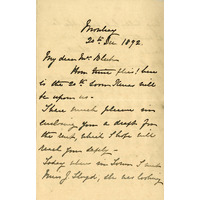 Bombay
20th Dec 1892.
My dear Mrs. Black
How time flies! here
is the 20th & soon Xmas will
be upon us -
I have much pleasure in
enclosing you a draft for
the end, which I hope will
reach you safely -
Today when in Town I made
Miss J. Lloyd, she was looking